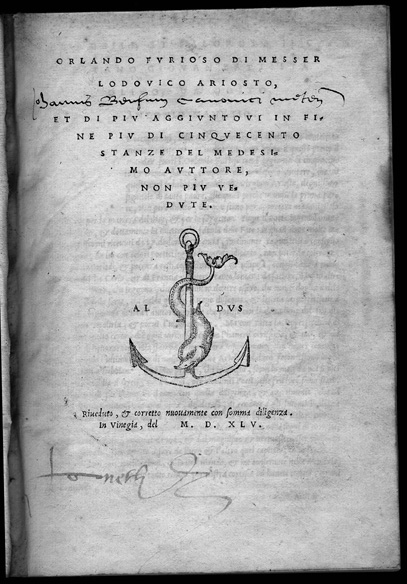 ORLANDO FVRIOSO DI MESSER
LODOVICO ARIOSTO,
ET DI PIV AGGIVNTOVI IN FI-
NE PIV DI CINQVECENTO
STANZE DEL MEDESI-
MO AVTTORE,
NON PIV VE-
DVTE.
AL DVS
Riueduto, & corretto nuouamente con somma diligenza.
In Vinegia, del M. D. XLV.